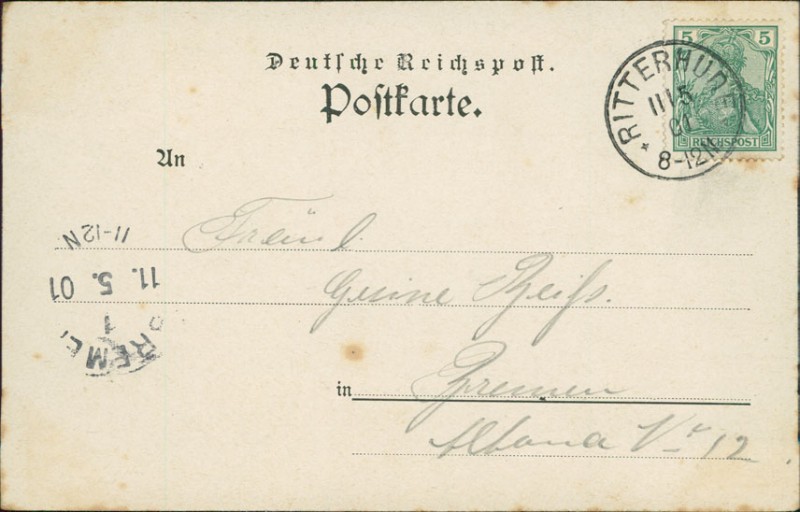 Deutsche Reichspost.
Postkarte.
5 5
REICHSPOST
RITTERHUDE
11 5
01
* 8-12N
An
Fräul.
Gesine
in Bremen
Altona Nr 12
BREMEN
1
11. 5. 01
11-12N